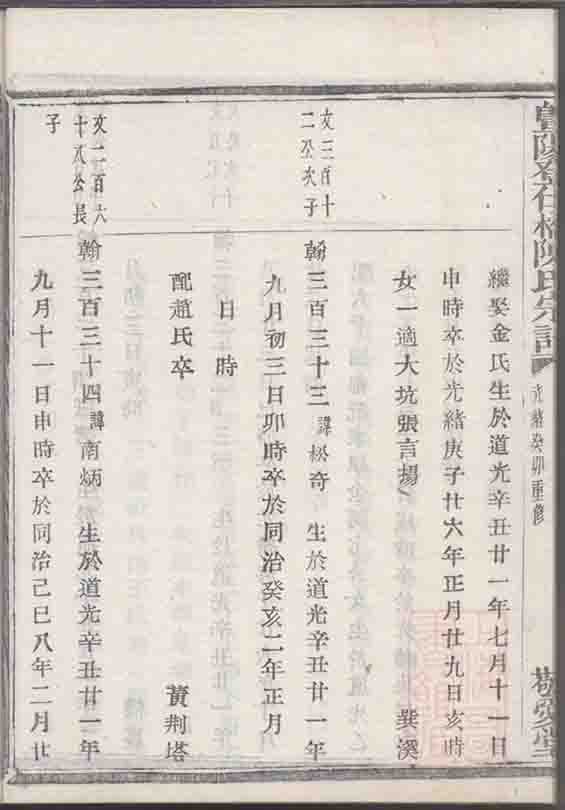 陳氏宗譜
光緒癸卯重修
敬愛堂
繼娶金氏生於道光辛丑廿一年七月十一日
申時卒於光緒庚子廿六年正月廿九日亥時
巽溪
女一適大坑張言揚
文三百十
二公次子
翰三百三十三諱松奇 生於道光辛丑廿一年
九月初三日卯時卒於同治癸亥二年正月
日時
黃荆塔
配趙氏卒
文一百六
十八公長
子
翰三百三十四諱南炳 生於道光辛丑廿一年
九月十一日申時卒於同治己巳八年二月廿